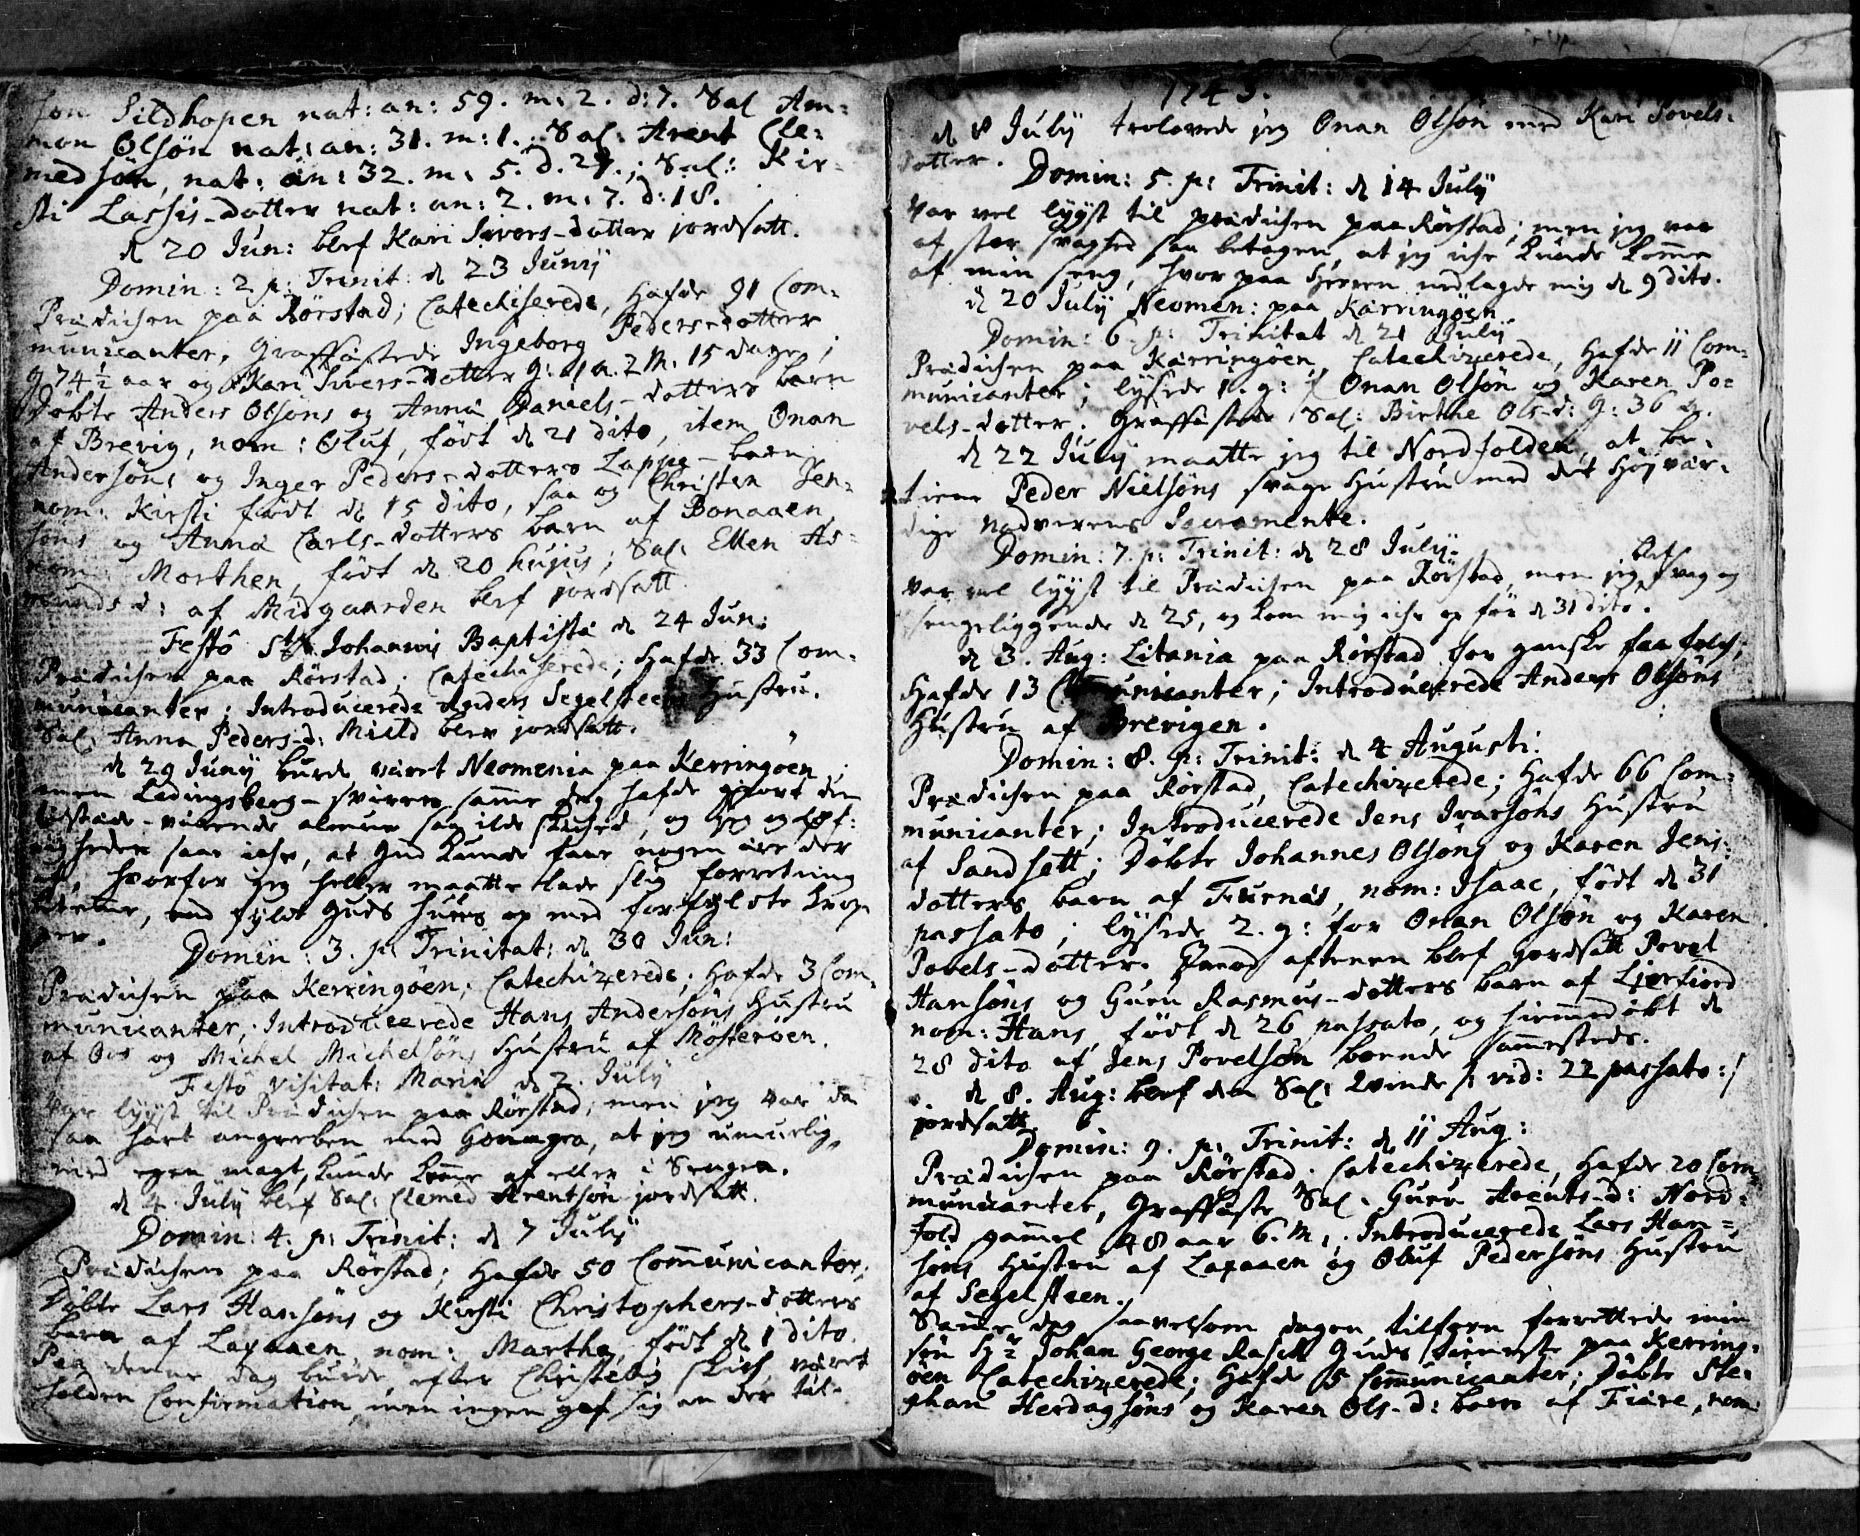 Jon Sildhopen nat: an: 59. m: 2. d: 7. Sal Am-
mon Olsön nat: an: 31. m: 1.; Sal: Arent Cle-
medsön, nat: an: 32. m: 5. d. 27.; Sal: Kir-
sti Lassis-datter nat: an: 2. m: 7. d: 18.
d 20 Jun: blef Kari Sivers-datter jordsatt.
Domin: 2. p: Trinit: d 23 Junij
Prædichen paa Rörstad; Catechiserede, Hafde 91 Com-
municanter, Graffæstede Ingeborg Peders-datter
g 74½ aar og Kari Sivers-datter g: 1 a. 2 M. 15 dage;
Döbte Anders Olsöns og Anna Daniels-datters barn
af Brevig, nom: Oluf, födt d 21 dito, item Onan
Andersöns og Inger Peders-datters Lappe-barn
nom: Kirsti födt d 15 dito, saa og Christen Jen-
söns og Anna Carls-datters barn af Bonaaen
nom: Morthen, födt d 20 hujus; Sal: Ellen As-
munds-d: af Midgaarden blef jordsatt
Festô St Johannis Baptistæ d 24 Jun:
Prædichen paa Rörstad; Catechiserede; Hafde 33 Com-
municanter; Introducerede Anders Segelsteens Hustru.
Sal: Anna Peders-d: Mield blev jordsatt.
d 29 Junij burde været Neomenia paa Kerringöen,
men Ledingsberg-svirren samme dag hafde giort den
tilstæde-værende almue saa ilde skiched, og
heden saa iche, at Gud kunde faae nogen ære der
af, hvorfor jeg heller maatte lade slig forretning
betiene, end fyldt Guds huus op med forfyldte krop-
per.
Domin: 3. p: Trinitat: d 30 Jun:
Prædichen paa Kerringöen; Catechizerede; Hafde 3 Com-
municanter; Introducerede Hans Andersöns Hustru
af Oos og Michel Michelsöns Hustru af Mösteröen.
Festô Visitat: Mariæ d 2. July
Var lyyst til Prædichen paa Rörstad; men jeg var da
saa hart angreben med Gonagra, at jeg umuelig
med egen magt kunde komme af eller i Sengen.
d 4 July blef Sal: Clemed Arentsön jordsatt.
Domin: 4. p: Trinit: d 7 July
Prædichen paa Rörstad; Hafde 50 Communicantor;
Döbte Lars Hansöns og Kirsti Christophers-datters
barn af Laxaaen nom: Martha, födt d 1 dito.
Paa denne dag burde efter Christelig skich været
holden Confirmation, men ingen gaf sig an der til.
1743.
d 8 July trolovede jeg Onan Olsön med Kari Povels-
datter.
Domin: 5. p: Trinit: d 14 July
Var vel lyyst til prædichen paa Rörstad; men jeg var
af stor svaghed saa betagen, at jeg iche kunde komme
af min seng, hvor paa Herren nedlagde mig d 9 dito.
d 20 July Neomen: paa Kærringöen
Domin: 6. p: Trinitat d 21 July
Prædichen paa Kærringöen, Catechizerede, Hafde 11 Com-
municanter; lyste 1. g: f Onan Olsön og Karen Po-
vels-datter. Graffæstede Sal: Birthe Ols-d: g: 36 a.
d 22 July maatte jeg til Nordfolden, at be-
tiene Peder Nielsöns svage Hustru med det Höjvær-
dige Nadverens Sacramente.
Domin: 7. p: Trinit: d 28 July
Var vel lyyst til Prædichen paa Rörstad, men jeg blef svag og
sengeliggende d 25, og kom mig iche op för d 31 dito.
d 3. Aug: Litania paa Rörstad for ganske faa folch;
Hafde 13 Communicanter; Introducerede Anders Olsöns
Hustru af Brevigen.
Domin: 8. p: Trinit: d 4 Augusti.
Prædichen paa Rörstad, Catechizerede; Hafde 66 Com-
municanter; Introducerede Jens Ivarsöns Hustru
af Sandsett; Döbte Johannes Olsöns og Karen Jens-
datters barn af Furnæs, nom: Isaac, födt d 31
passato; lyste 2. g: for Onan Olsön og Karen
Povels-datter. aftenen blef jordsatt Povel
Hansöns og Guru Rasmus-datters barn af Lierfiord
nom: Hans, födt d 26 passato, og hiemmedöbt d
28 dito af Jens Povelsön boende sammesteds.
d 8. Aug: blef den Sal: Qvinde /: vid: 22 passato :/
jordsatt.
Domin: 9. p: Trinit: d 11 Aug:
Prædichen paa Rörstad. Catechizerede, Hafde 20 Com-
municanter, Graffæste Sal: Guru Arents-d: Nord-
fold gammel 48 aar 6. M.; Introducerede Lars Han-
söns Hustru af Laxaaen og Oluf Pedersöns Hustru
af Segelsteen.
Samme dag saavelsom dagen tilforn forrettede min
sön Hr Johan George Rasch Guds tieneste paa Kerring-
öen Catechizerede; Hafde 5 Communicanter; Döbte Ste-
phan Herdagsöns og Karen Ols-d: barn af Fiære, nom: